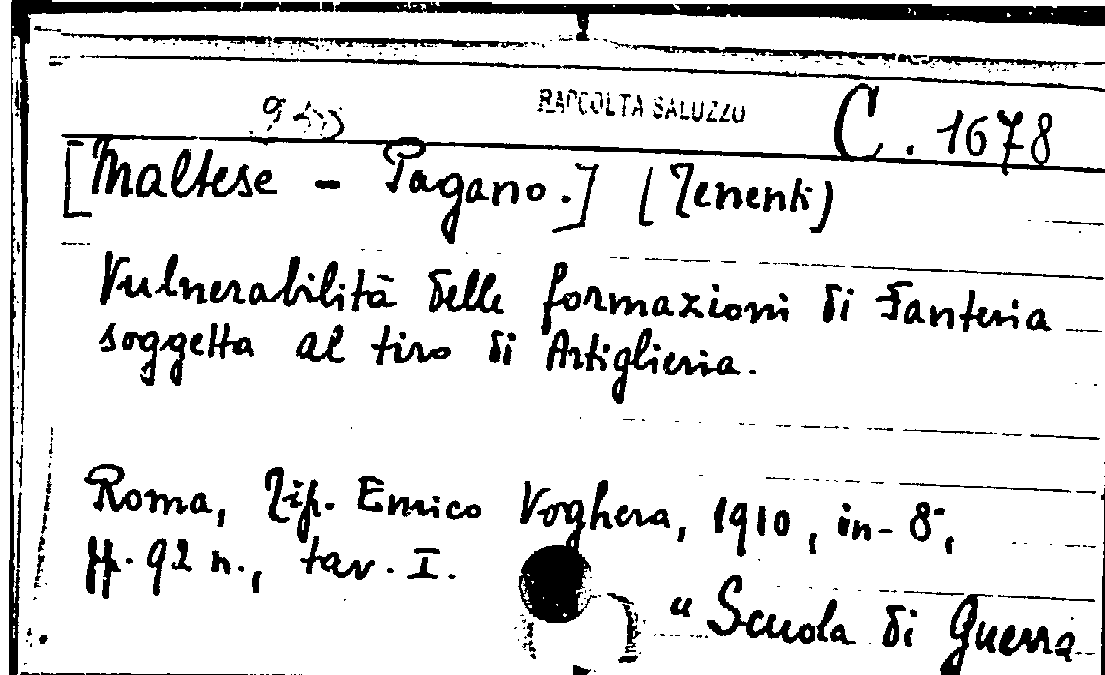 RACCOLTA SALUZZO C. 1678
[Maltese - Pagano.] (Tenenti)
Vulnerabilità delle formazioni di Fanteria
soggetta al tiro di Artiglieria.
Roma, Tip. Enrico Voghera, 1910, in-8°,
pp. 92 n., tav. I.
"Scuola di Guerra